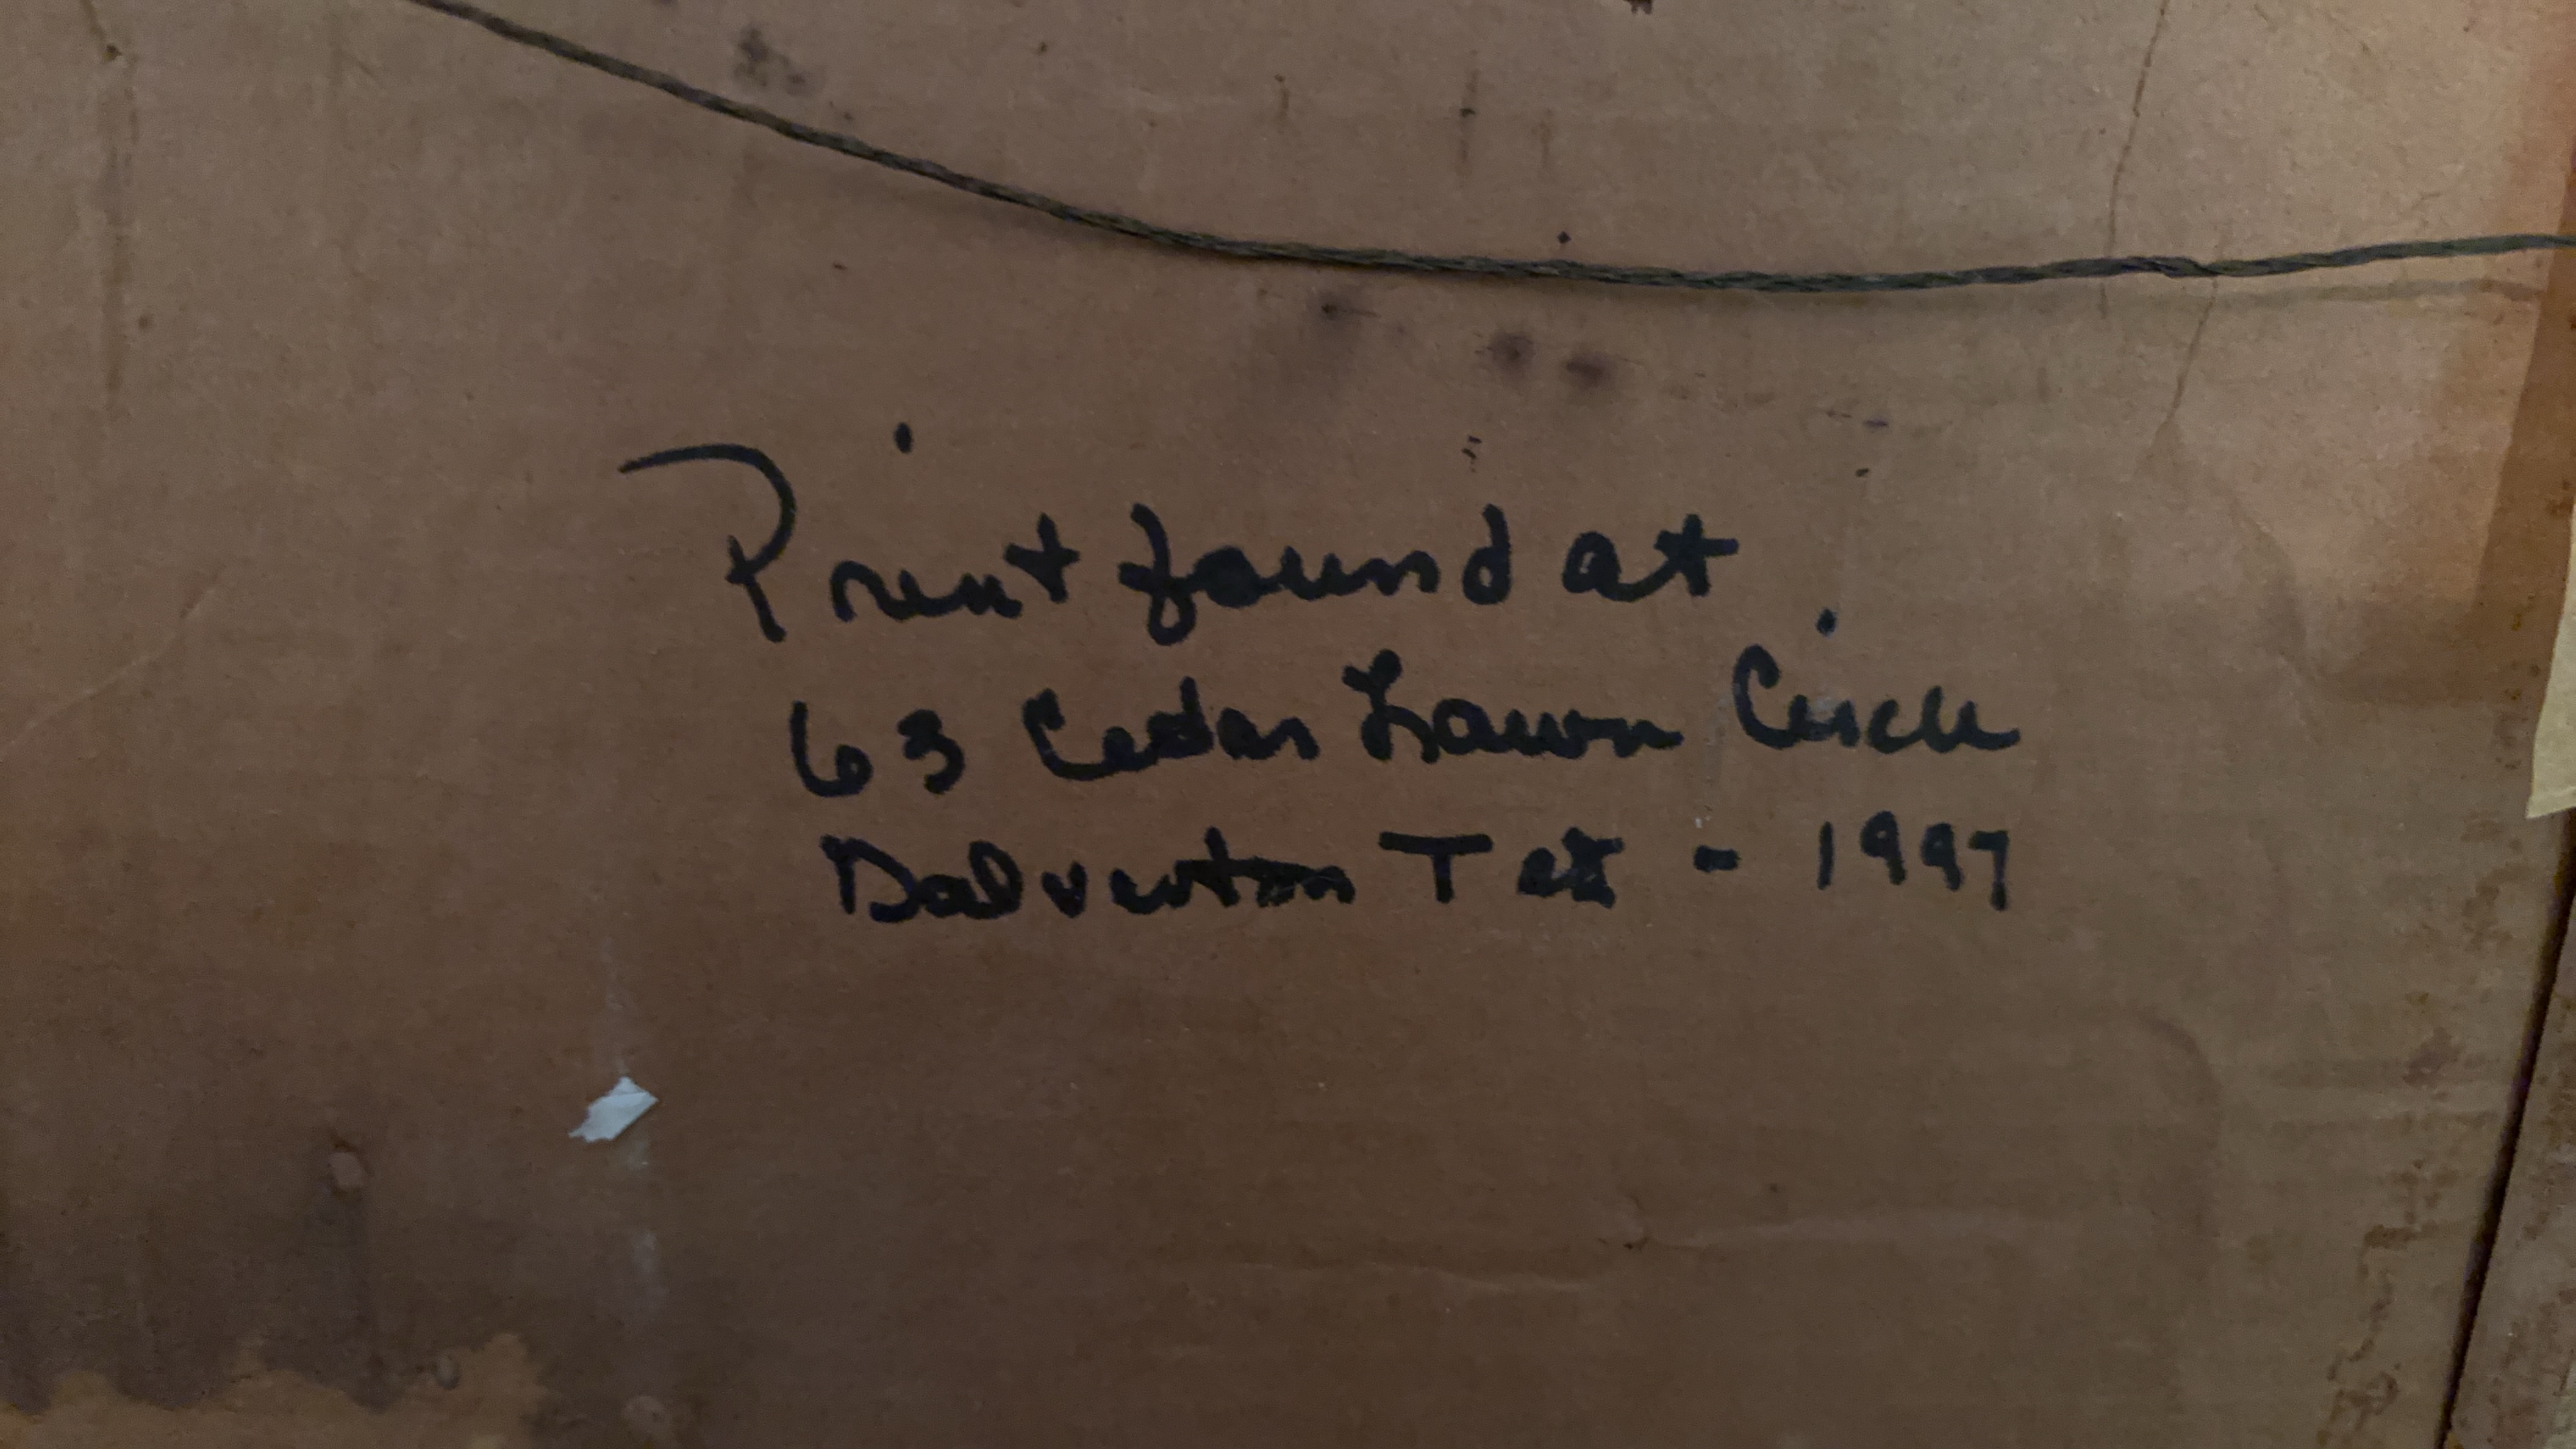 Print found at
63 Cedar Lawn Circle
Galveston Tex - 1997